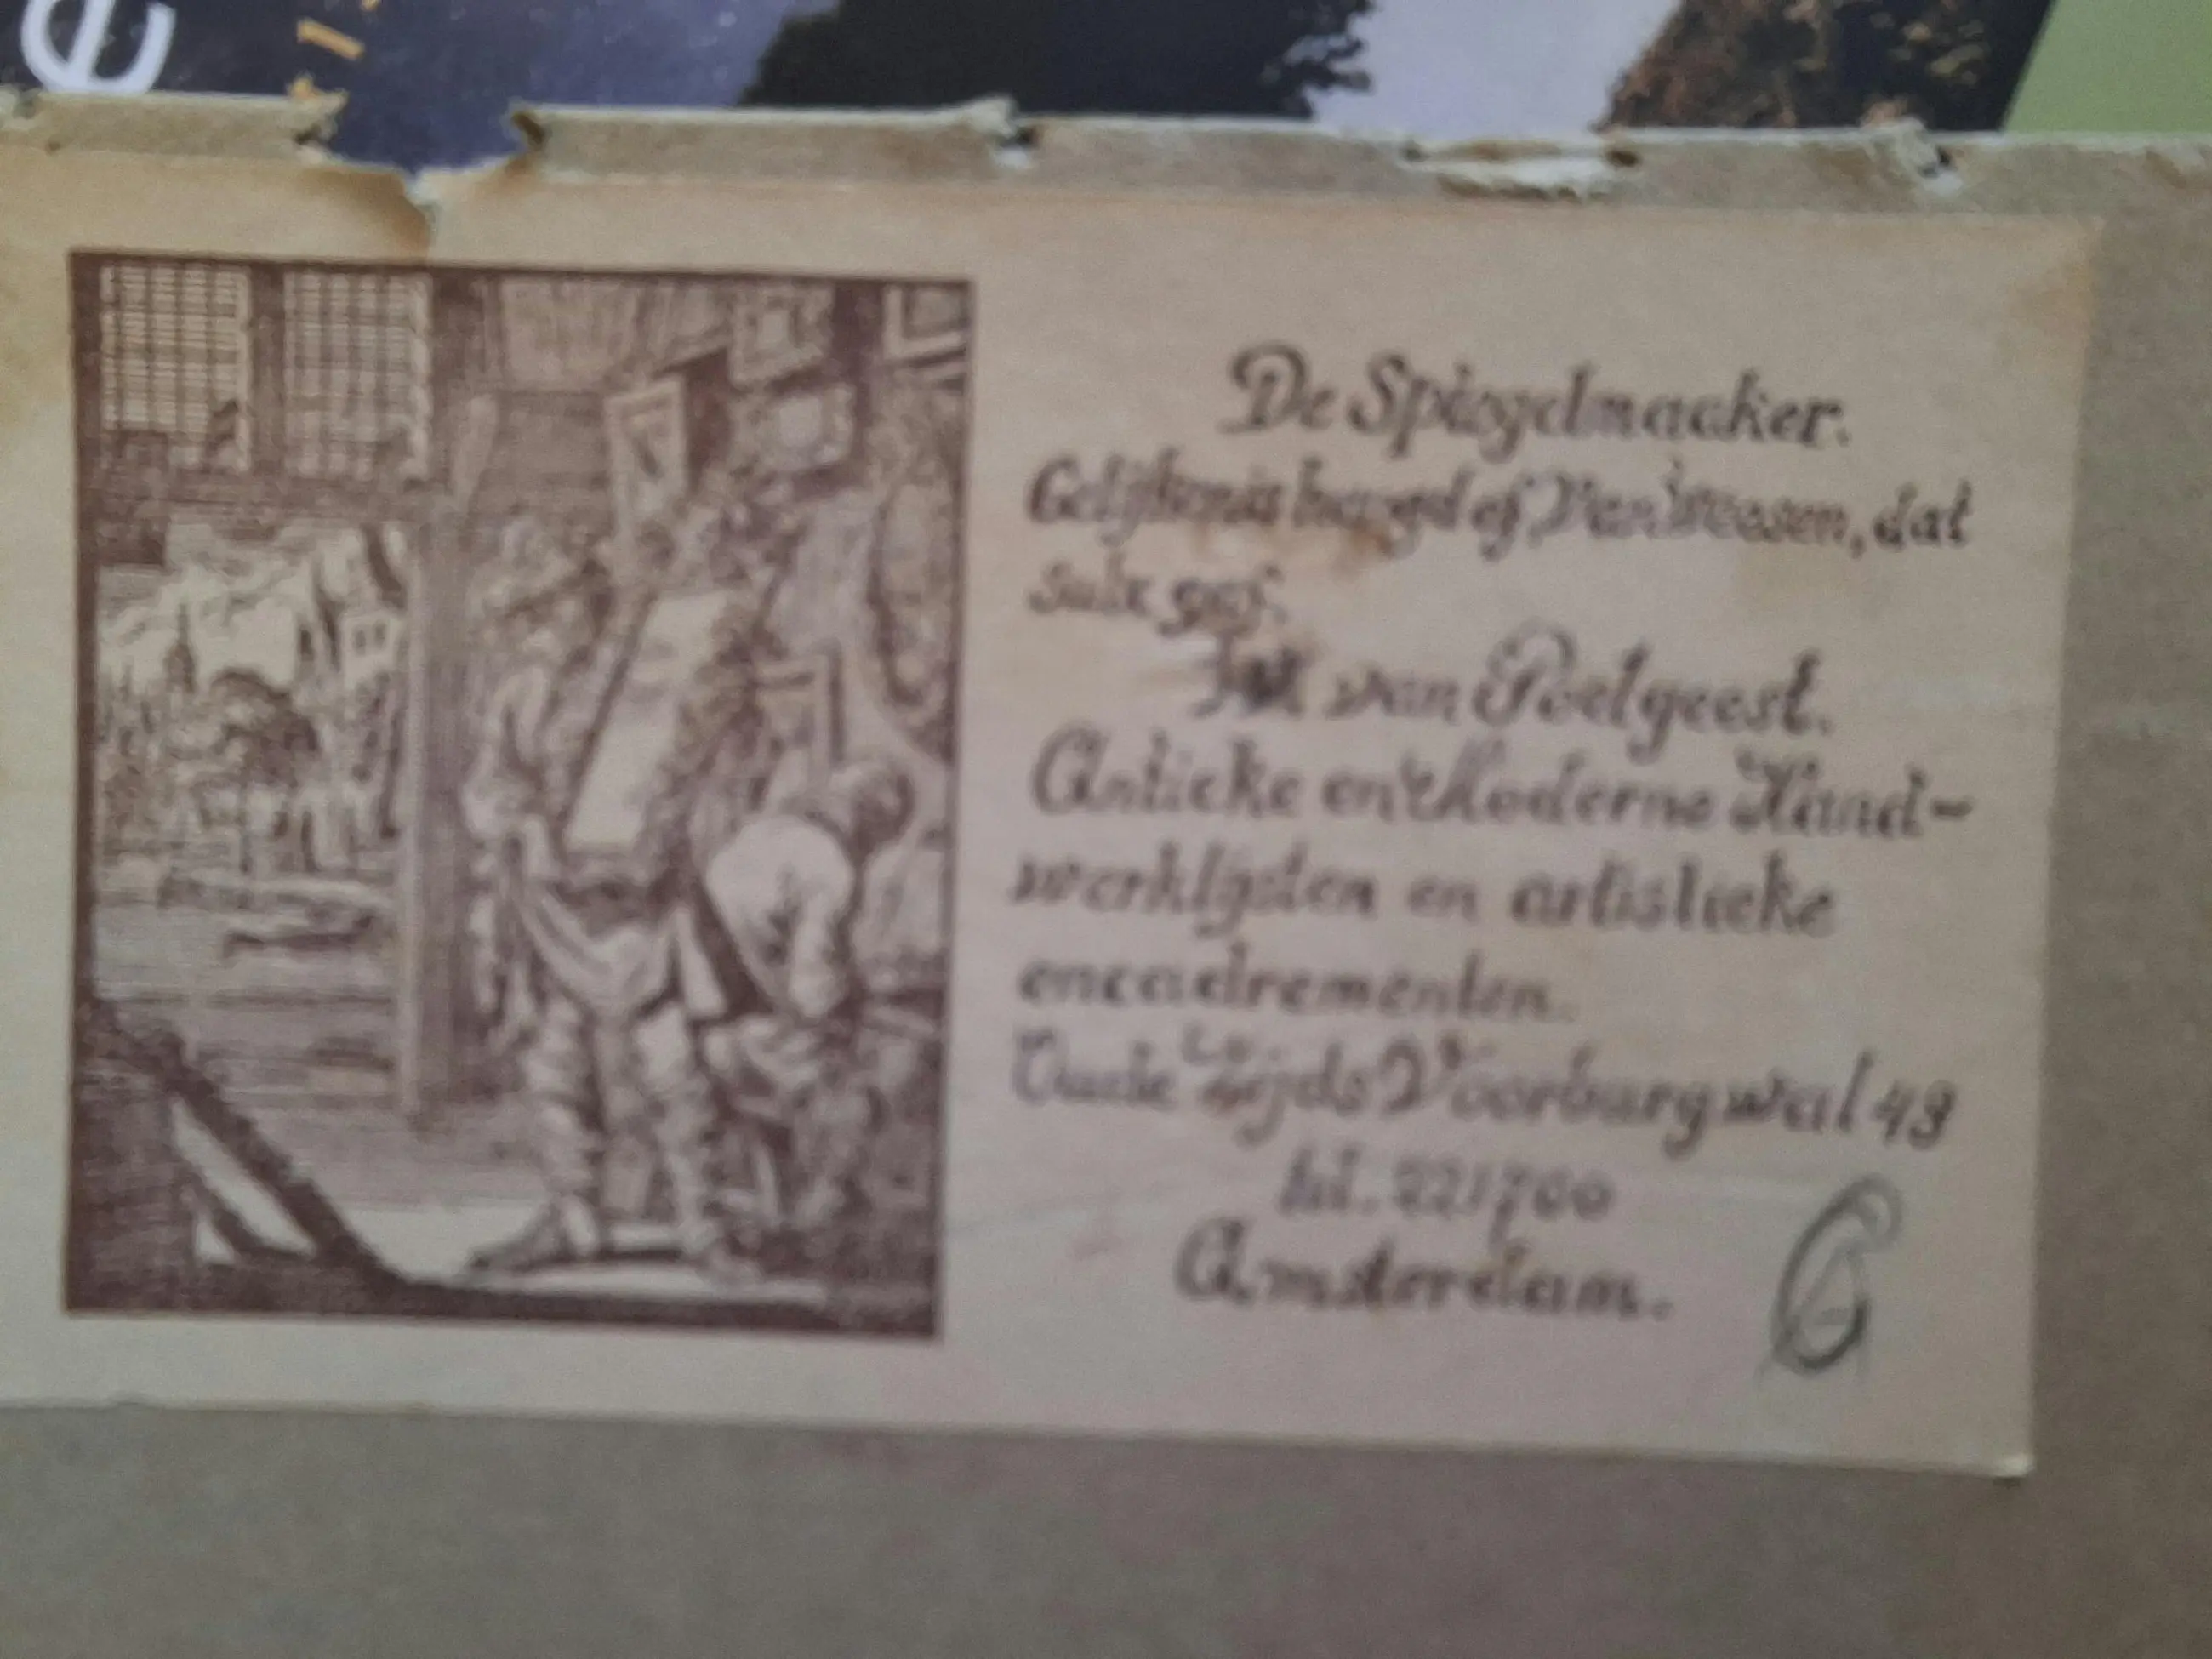 e
De Spiegelmaaker.
Gelijkenis
dat
sulx
van Poelgeest.
Antieke en Moderne Hand-
werklijsten en artistieke
encadrementen.
Oude Zijds Voorburgwal 49
tel. 221700
Amsterdam.